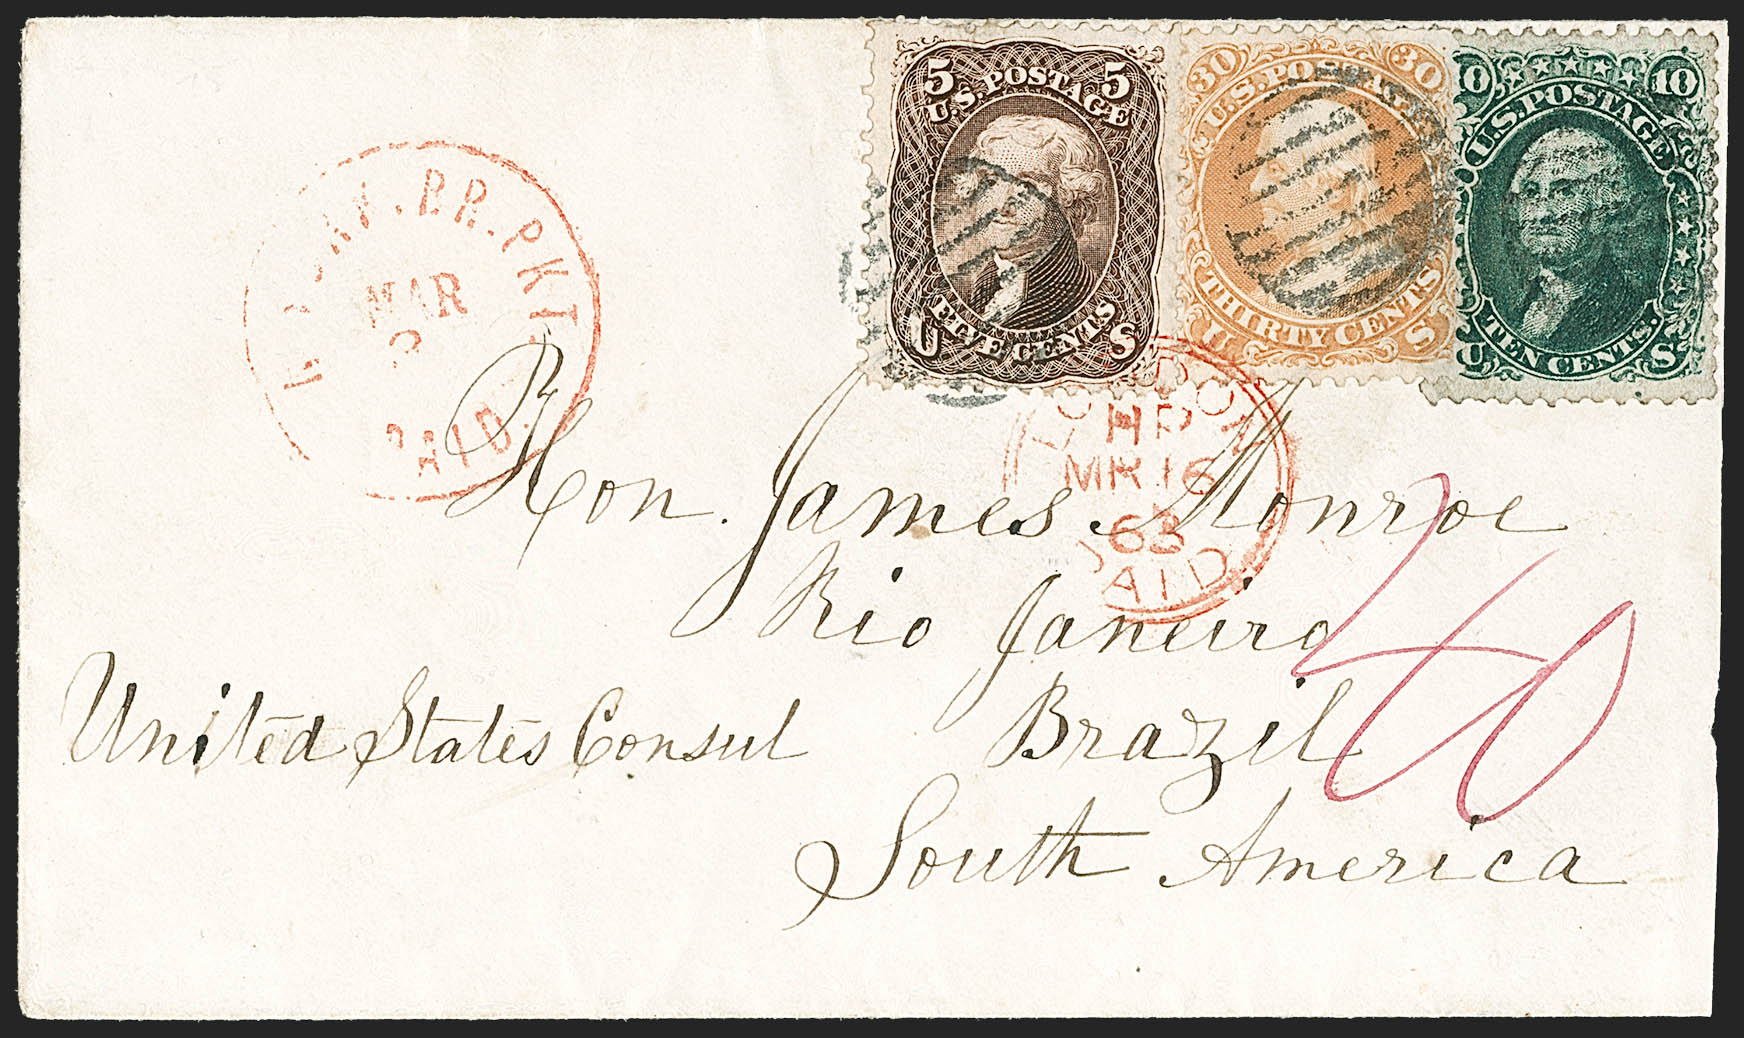 5 5
U.S. POSTAGE
FIVE CENTS
U S
30 30
U.S. POSTAGE
THIRTY CENTS
U S
10 10
U.S. POSTAGE
TEN CENTS.
U S
BR. PKT.
MAR
PAID.
LONDON
HP
MR 16
63
PAID
Hon. James Monroe
Rio Janeiro
United States Consul Brazil
South America
40